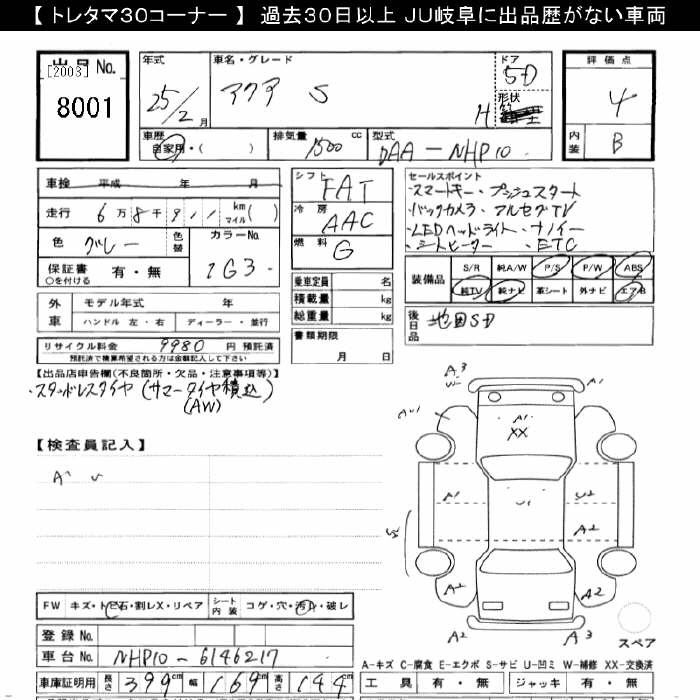 【 トレタマ30コーナー 】 過去30日以上 JU岐阜に出品歴がない車両
出品No. [2003] 8001
年式 25/2月
車名・グレード アクア S H
ドア 5D
形状
評価点 4
内装 B
車歴 自家用・( )
排気量 1500 cc
型式 DAA-NHP10
車検 平成 年 月
走行 6万8千911 km マイル( )
色 グレー 色替 カラーNo. 1G3
保証書 ○を付ける 有・無
シフト FAT
冷房 AAC
燃料 G
乗車定員 名
積載量 kg
総重量 kg
書類期限 月 日
セールスポイント
・スマートキー・プッシュスタート
・バックカメラ・フルセグTV
・LEDヘッドライト・ナノイー
・シートヒーター・ETC
装備品 S/R 純A/W P/S P/W ABS
純TV 純ナビ 革シート 外ナビ エアB
後日品 地図SD
外車 モデル年式 年
ハンドル 左・右 ディーラー・並行
リサイクル料金 9980 円 預託済
預託済で積算希望する方は金額記入して下さい
【出品店申告欄(不良箇所・欠品・注意事項等)】
・スタッドレスタイヤ(サマータイヤ積込)
(AW)
【検査員記入】
A U
A3 W A1
AU1 A1
XX
A1 U1 U2
A2
A2 A2
A2 A3
スペア
FW キズ・トビ石・割レX・リペア シート内装 コゲ・穴・汚レ・破レ
登録No.
車台No. NHP10-6146217
A-キズ C-腐食 E-エクボ S-サビ U-凹ミ W-補修 XX-交換済
車庫証明用 長さ 399cm 幅 169cm 高さ 144cm
工具 有・無 ジャッキ 有・無